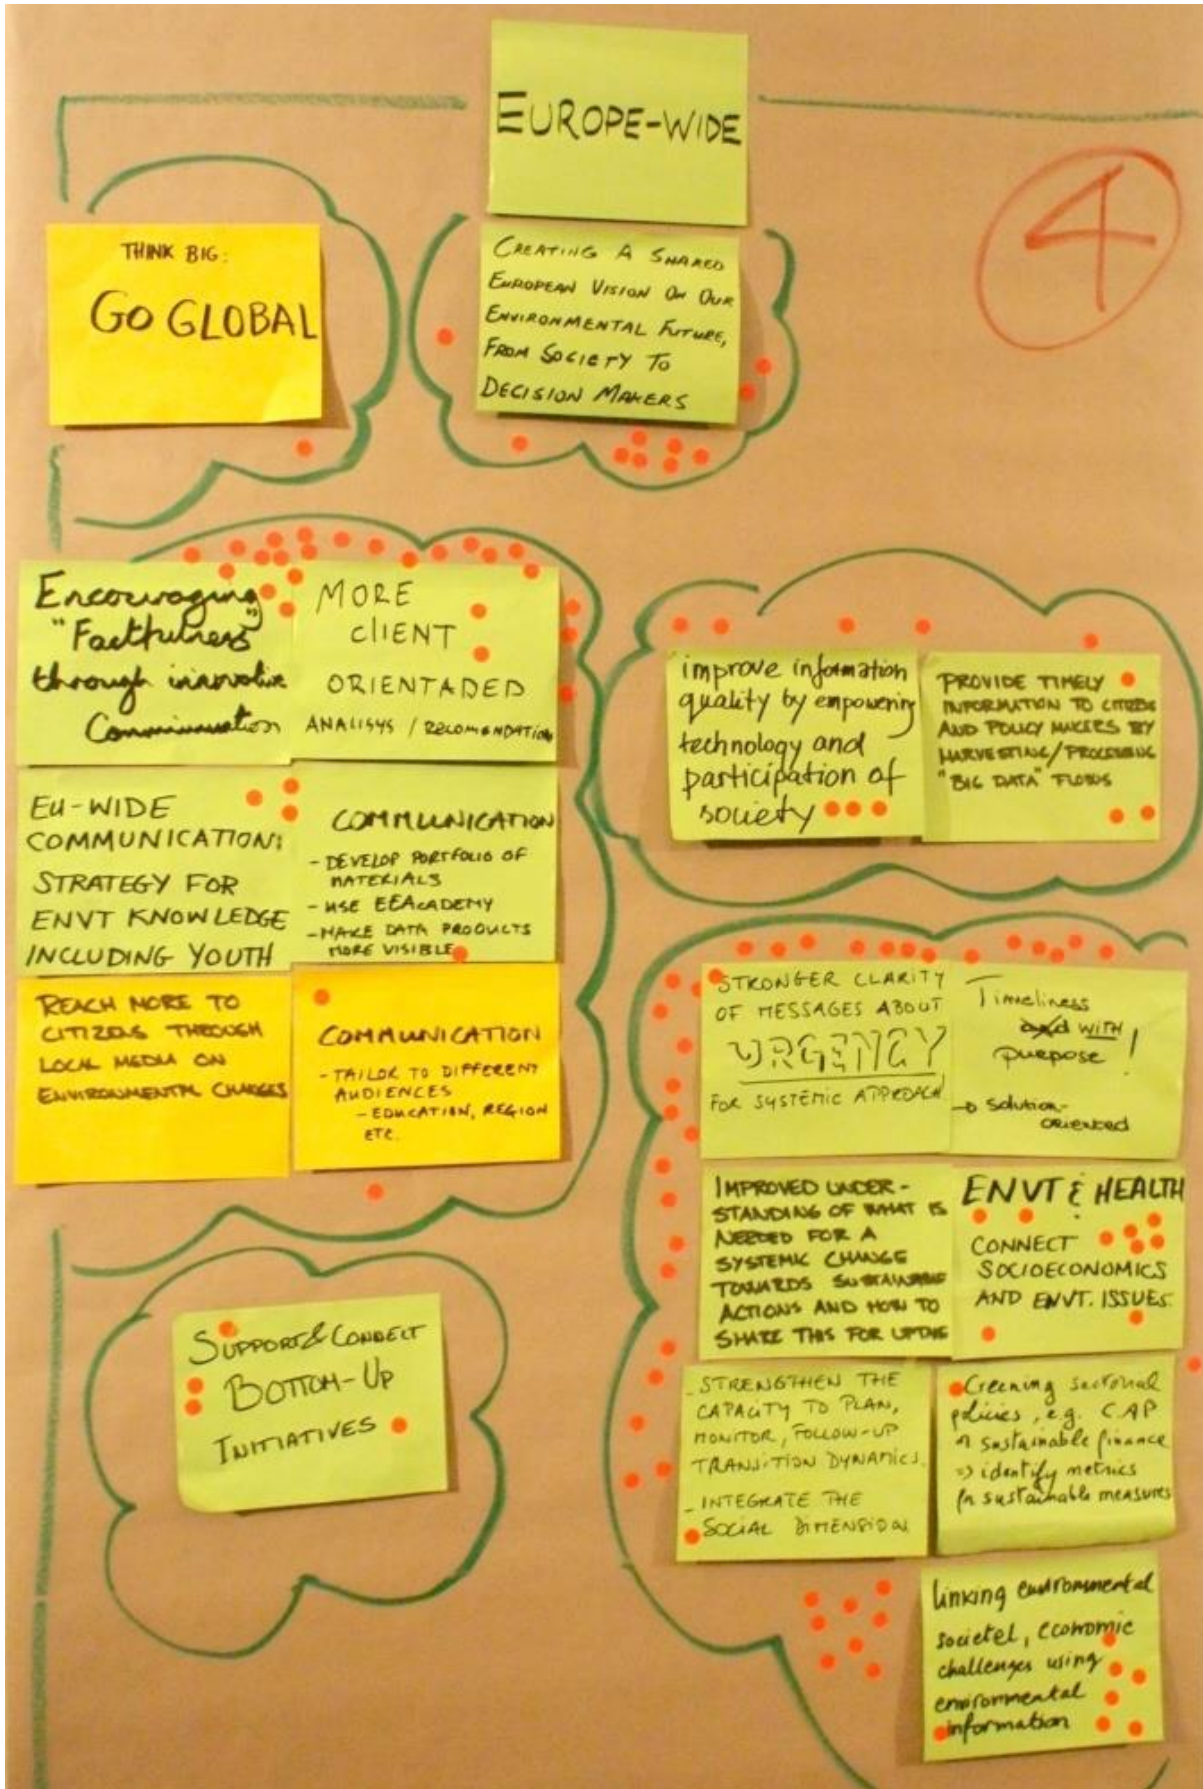 EUROPE-WIDE
4
THINK BIG:
GO GLOBAL
CREATING A SHARED
EUROPEAN VISION ON OUR
ENVIRONMENTAL FUTURE,
FROM SOCIETY TO
DECISION MAKERS
Encouraging
"Factfulness"
through innovative
Communication
MORE
CLIENT
ORIENTADED
ANALISYS / RECOMENDATION
EU-WIDE
COMMUNICATION:
STRATEGY FOR
ENVT KNOWLEDGE
INCLUDING YOUTH
COMMUNICATION
- DEVELOP PORTFOLIO OF
MATERIALS
- USE EEACADEMY
- MAKE DATA PRODUCTS
MORE VISIBLE
REACH MORE TO
CITIZENS THROUGH
LOCAL MEDIA ON
ENVIRONMENTAL CHANGES
COMMUNICATION
- TAILOR TO DIFFERENT
AUDIENCES
- EDUCATION, REGION
ETC.
SUPPORT & CONNECT
BOTTOM-UP
INITIATIVES
improve information
quality by empowering
technology and
participation of
society
PROVIDE TIMELY
INFORMATION TO CITIZENS
AND POLICY MAKERS BY
HARVESTING/PROCESSING
"BIG DATA" FLOWS
STRONGER CLARITY
OF MESSAGES ABOUT
URGENCY
FOR SYSTEMIC APPROACH
Timeliness
and WITH
purpose !
→ solution-
oriented
IMPROVED UNDER-
STANDING OF WHAT IS
NEEDED FOR A
SYSTEMIC CHANGE
TOWARDS SUSTAINABLE
ACTIONS AND HOW TO
SHARE THIS FOR
ENVT & HEALTH
CONNECT
SOCIOECONOMICS
AND ENVT. ISSUES
- STRENGTHEN THE
CAPACITY TO PLAN,
MONITOR, FOLLOW-UP
TRANSITION DYNAMICS.
- INTEGRATE THE
SOCIAL DIMENSION
Greening sectorial
policies, e.g. CAP
sustainable finance
=> identify metrics
sustainable measures
linking environmental
societel, economic
challenges using
environmental
information